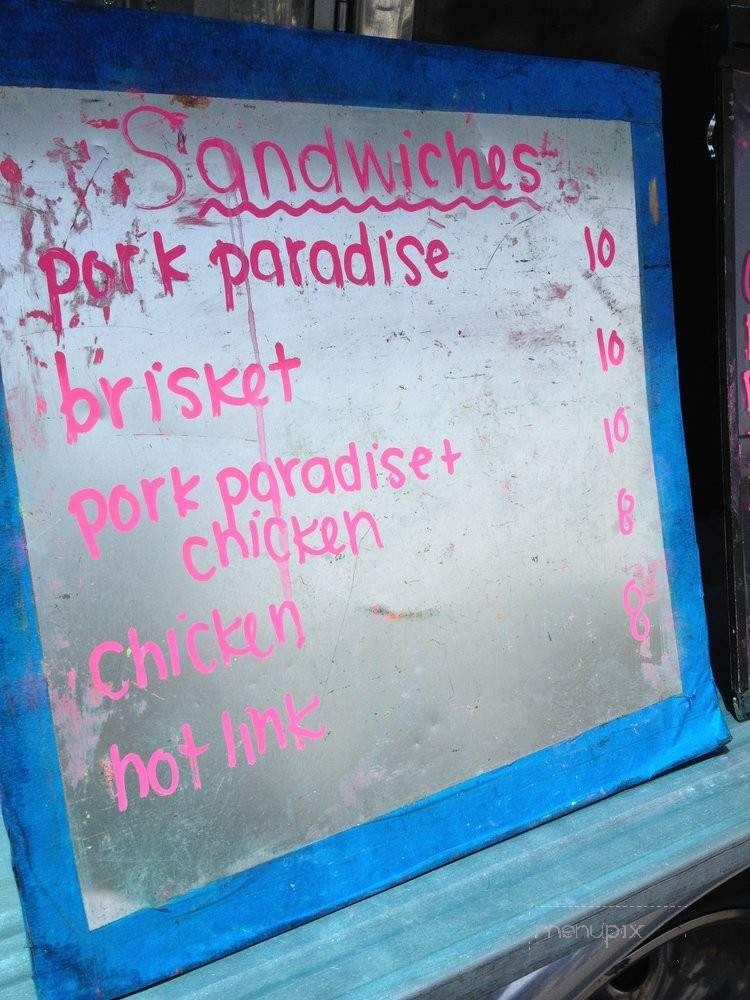 Sandwiches
pork paradise 10
brisket 10
pork paradise + 10
chicken
chicken 8
hot link 8
menupix